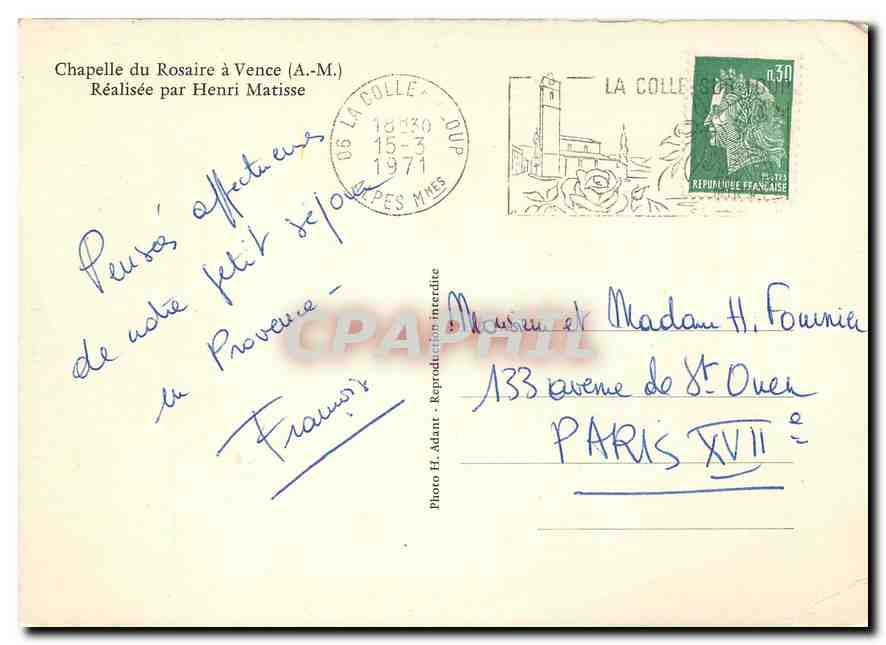 Chapelle du Rosaire à Vence (A.-M.)
Réalisée par Henri Matisse
06 LA COLLE-SUR-LOUP
18H30
15-3
1971
ALPES MMES
LA COLLE-SUR-LOUP
0,30
POSTES
REPUBLIQUE FRANÇAISE
Pensées affectueuses
de notre petit séjour
en Provence -
François
Photo H. Adant - Reproduction interdite
CPAPHIL
Monsieur et Madame H. Fournier
133 avenue de St. Ouen
PARIS XVIIe